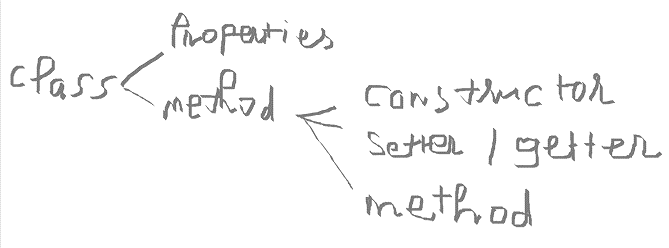 Properties
class
method
constructor
setter / getter
method